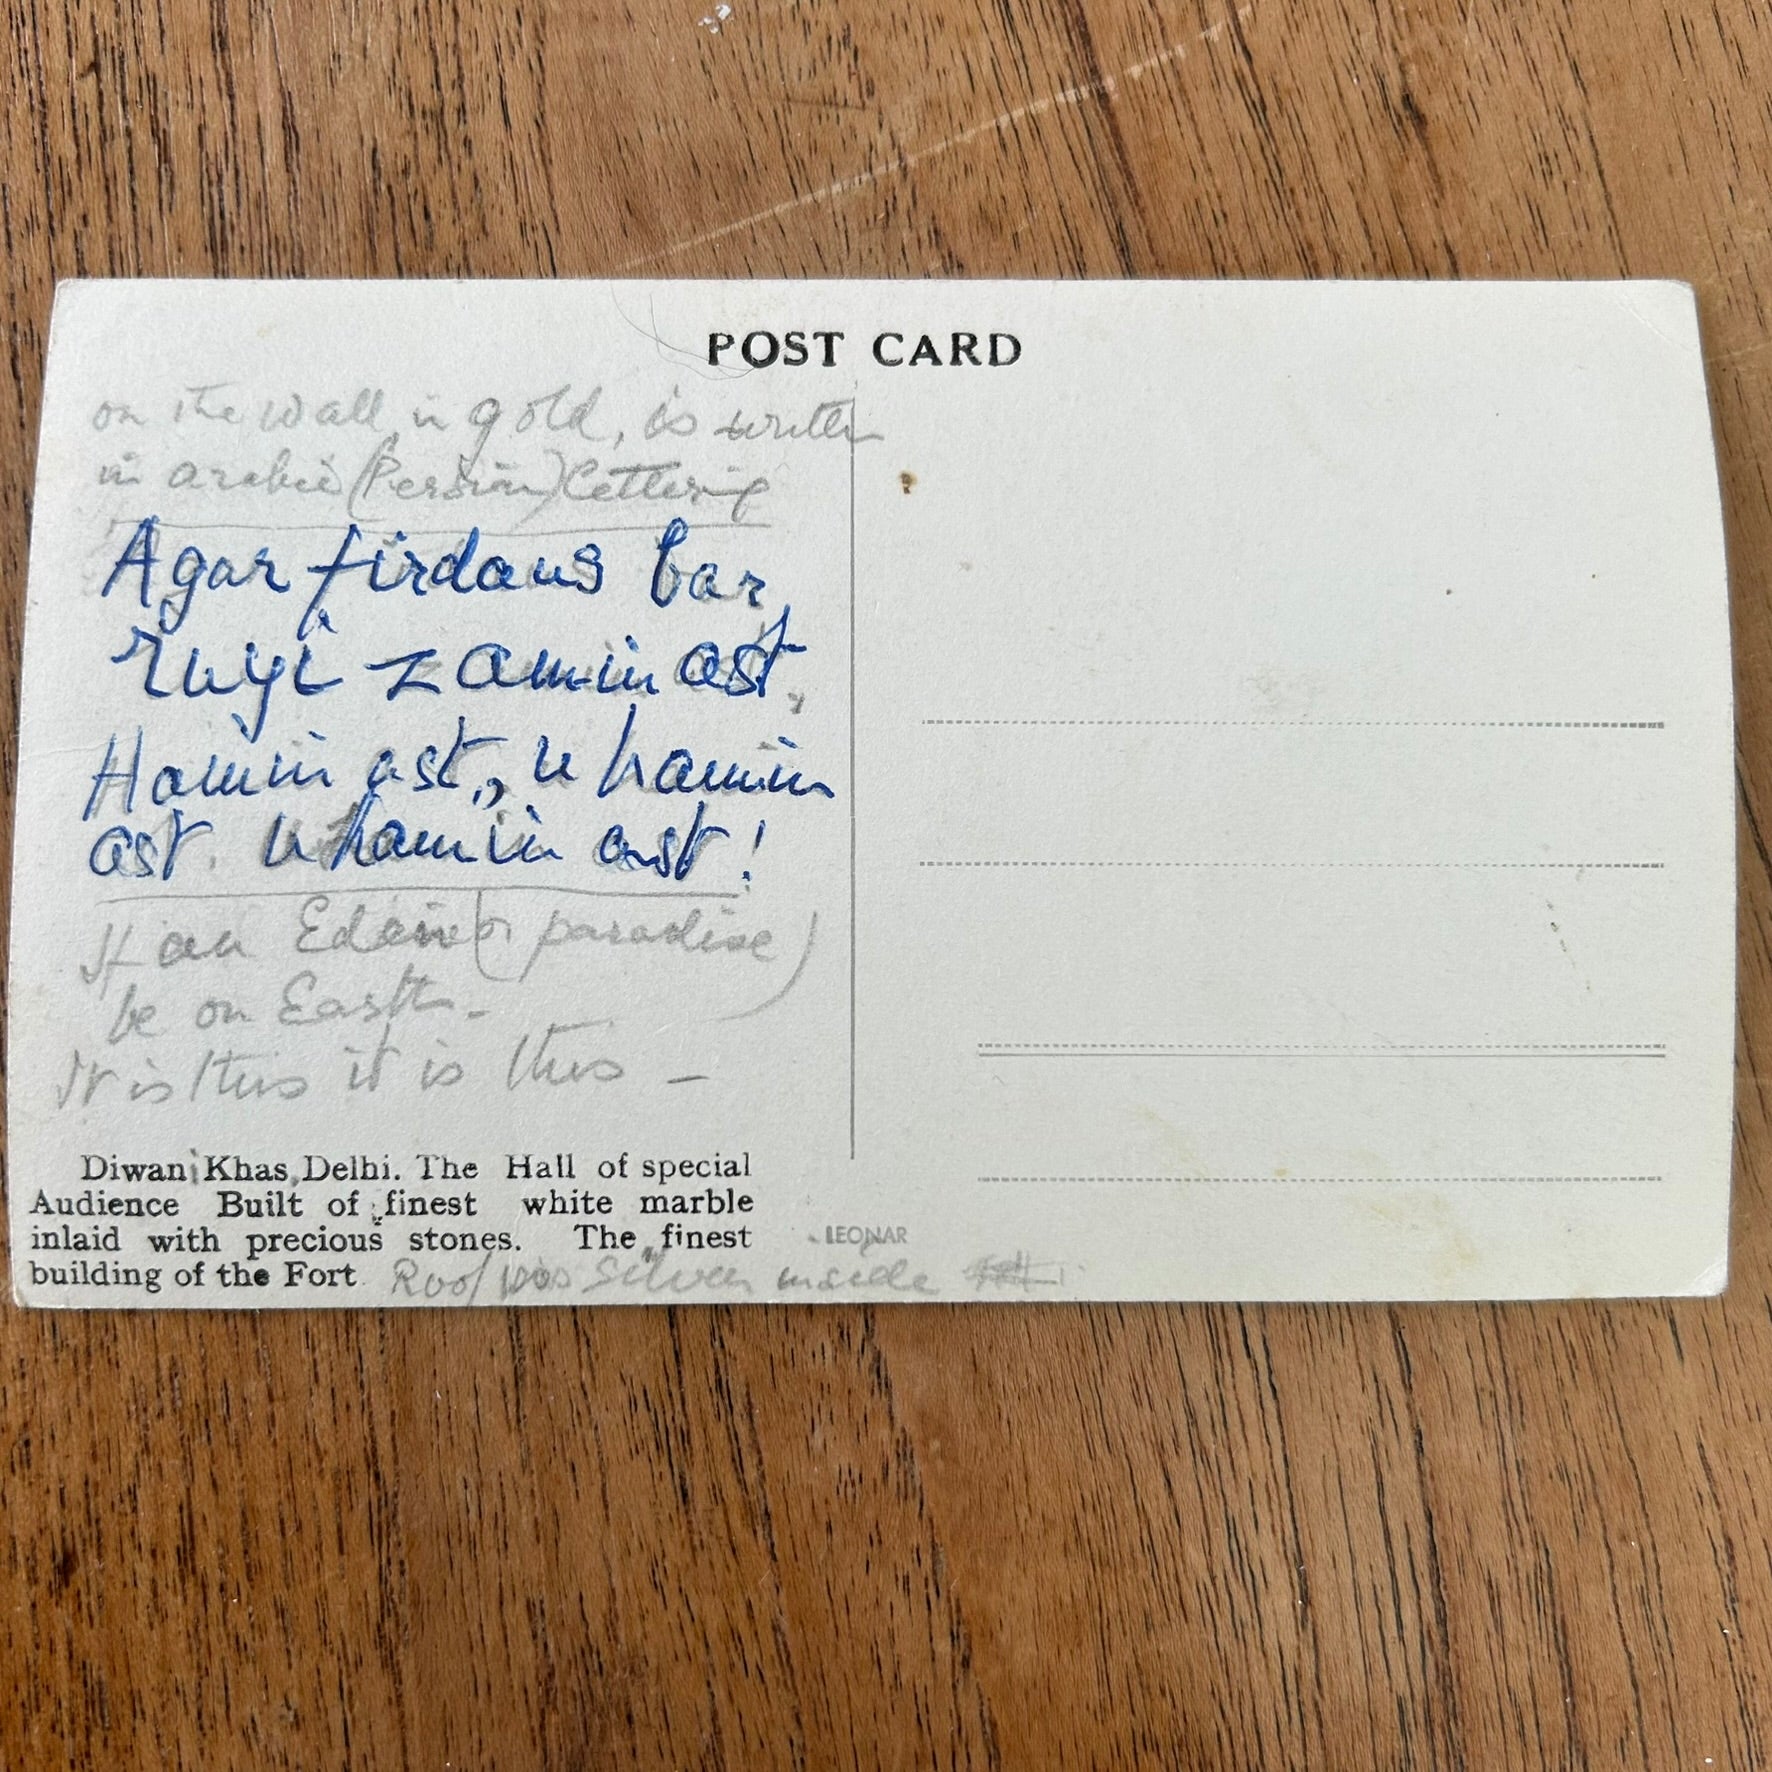 POST CARD
on the wall in gold, is written
in arabic (Persian) lettering
Agar firdaus bar
ruyi zamin ast,
Hamin ast,, u hamin
ast u hamin ast!
If an Eden (or paradise)
be on Earth -
It is this it is this -
Diwan Khas, Delhi. The Hall of special
Audience Built of finest white marble
inlaid with precious stones. The finest
building of the Fort Roof was silver inside
LEONAR